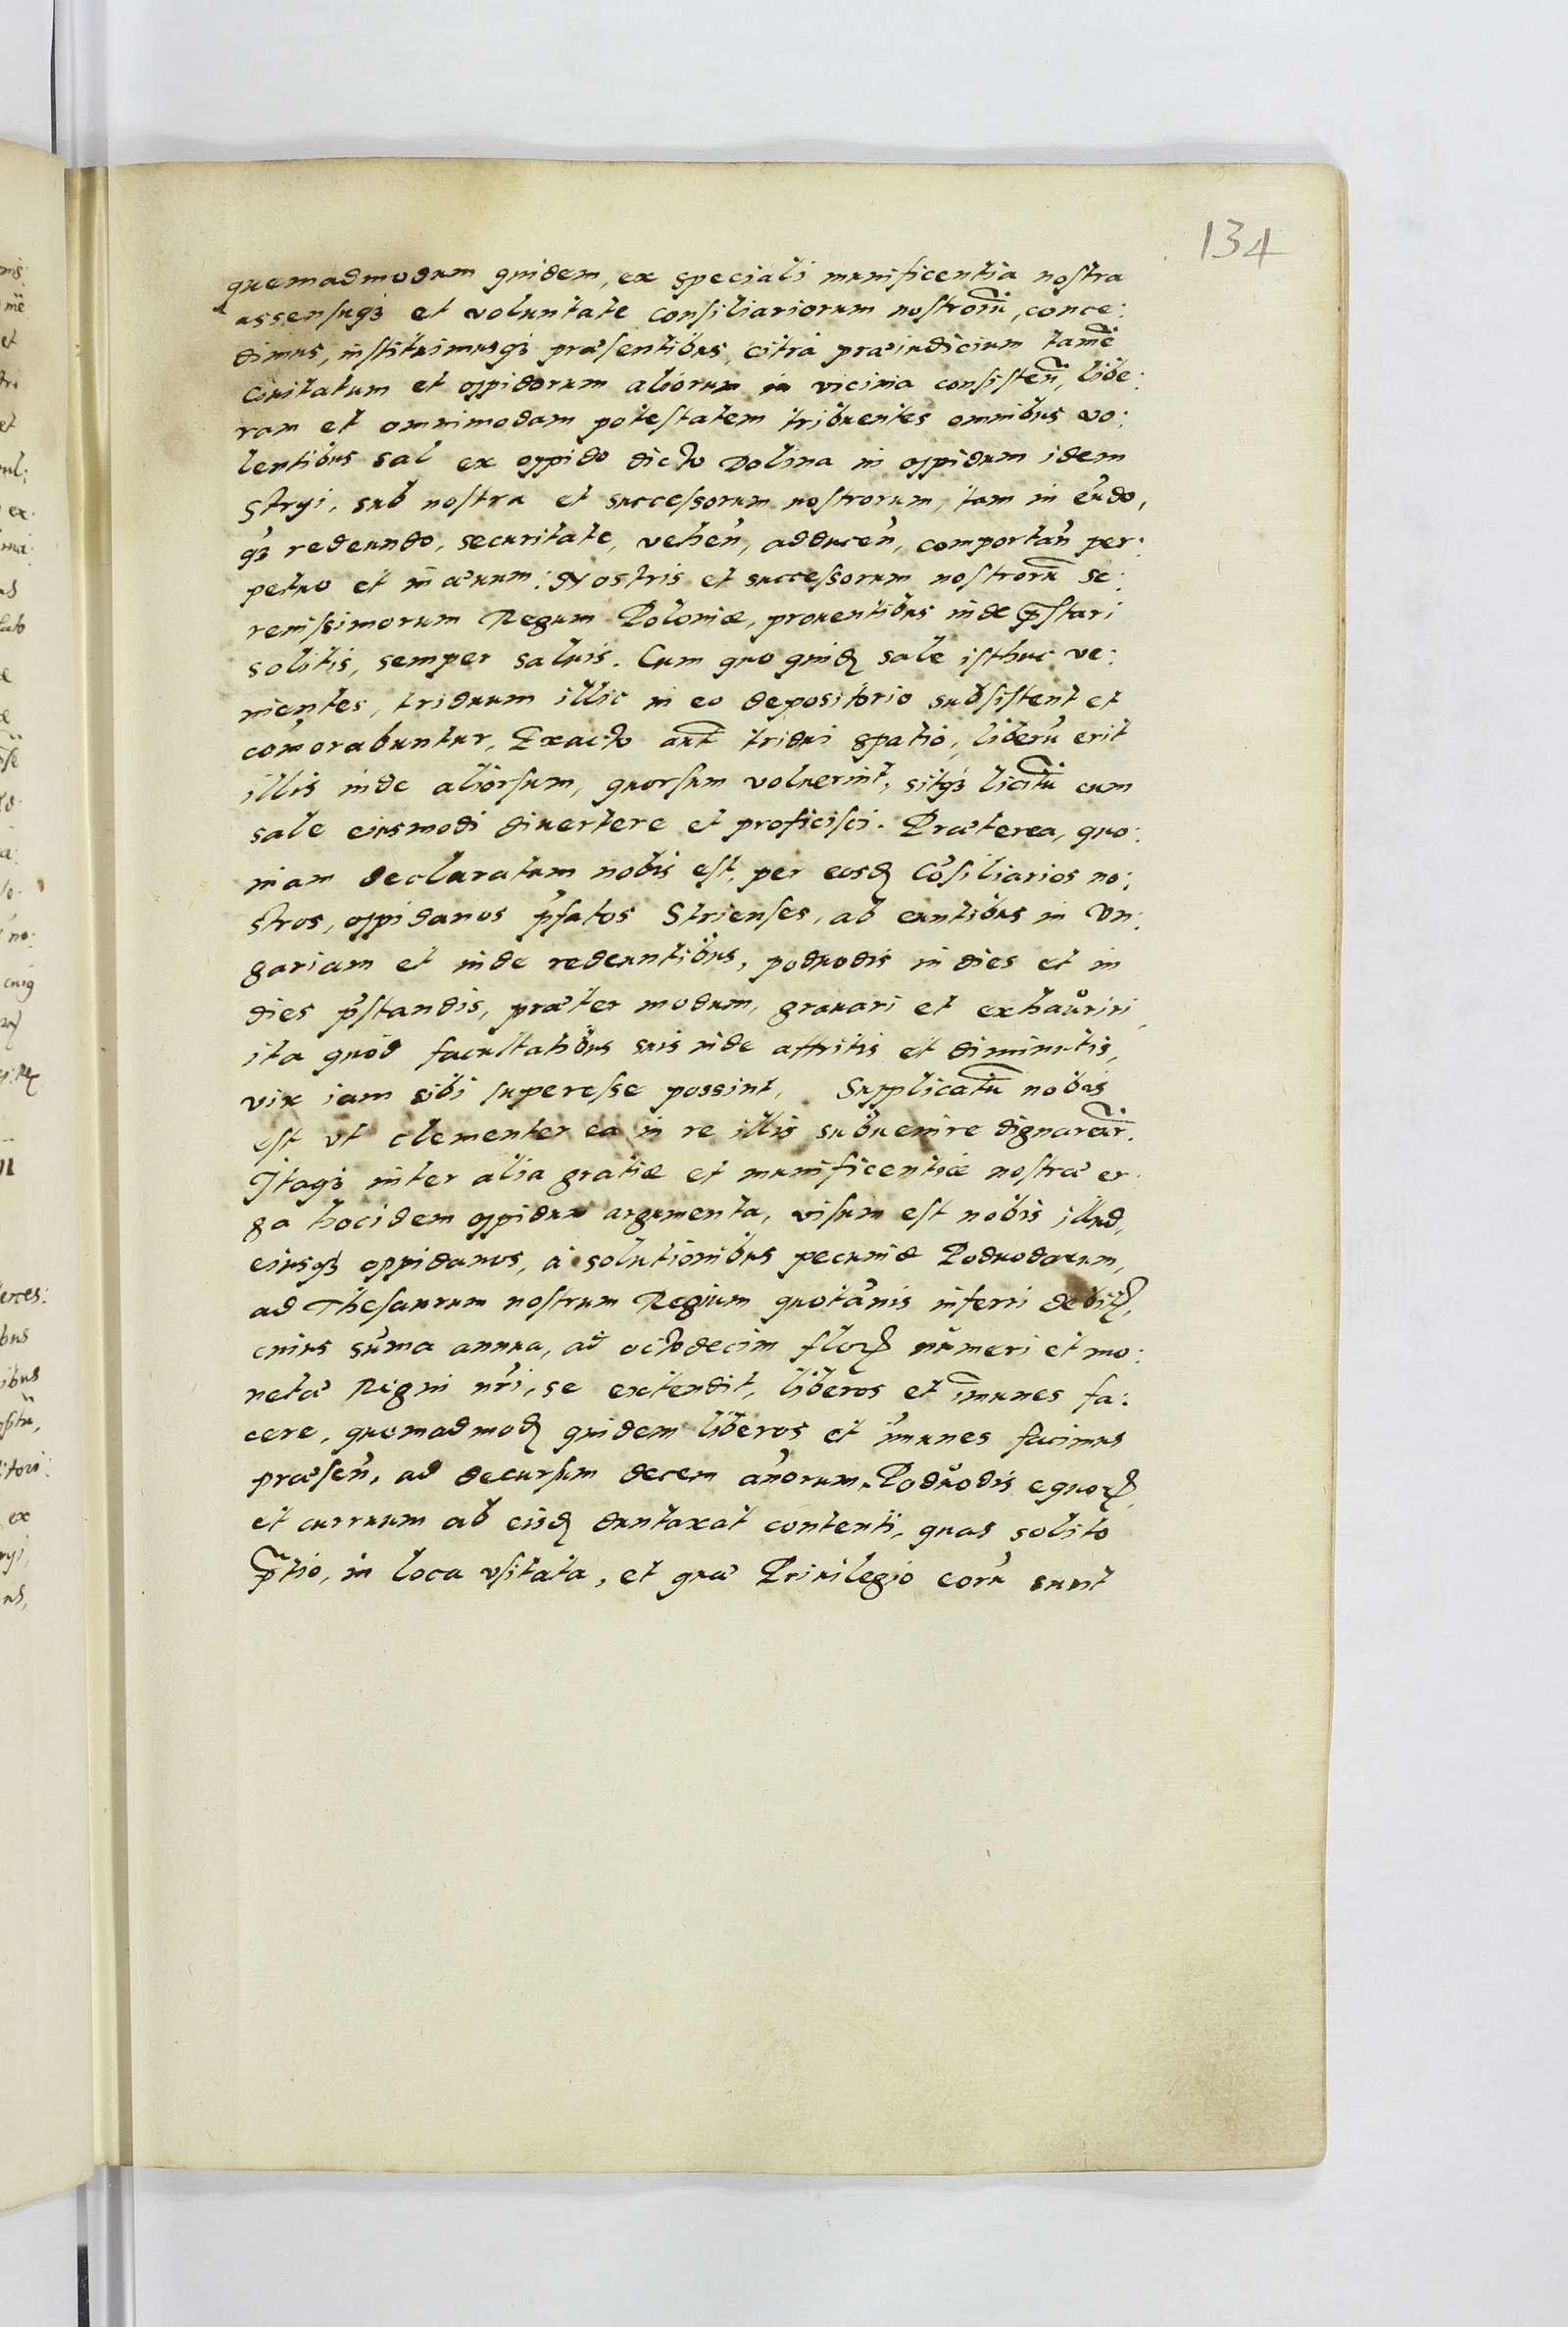 134
quemadmodum quidem, ex speciali munificentia nostra
assensuqꝫ et voluntate consiliariorum nostrorũ, conce:
dimus, instituimusqꝫ præsentibus, citra præiudicium tamẽ
Ciuitatum et oppidorum aliorum in vicinia consisteñ, libe:
ram et omnimodam potestatem tribuentes omnibus vo:
lentibus sal ex oppido dicto Dolina in oppidum idem
Stryi, sub nostra et successorum nostrorum, tam in eũdo,
qꝫ redeundo, securitate, veheñ, adduceñ, comportañ per:
petuo et in æuum: Nostris et successorum nostrorũ se:
renissimorum Regum Poloniæ, prouentibus inde p̃stari
solitis, semper saluis. Cum quo quidꝫ sale isthuc ve:
nientes, triduum illic in eo depositorio subsistent et
com̃orabuntur, Exacto aut̃ tridui spatio, liberũ erit
illis inde aliorsum, quorsum voluerint, sitqꝫ licitũ cum
sale eiusmodi diuertere et proficisci. Præterea, quo:
niam declaratum nobis est, per eosdꝫ Cõsiliarios no:
stros, oppidanos p̃fatos Strienses, ab euntibus in Vn:
gariam et inde redeuntibus, poduodis in dies et in
dies p̃standis, præter modum, grauari et exhauriri,
ita quòd facultatibus suis inde attritis et diminutis,
vix iam sibi superesse possint, Supplicatũ nobis
est vt clementer ea in re illis subuenire dignarẽur.
Itaqꝫ inter alia gratiæ et munificentiæ nostræ er:
ga hoc idem oppidum argumenta, visum est nobis illud,
eiusqꝫ oppidanos, à solutionibus pecuniæ Poduodarum,
ad Thesaurum nostrum Regium quotãnis inferri debitꝫ,
cuius sum̃a annua, ad octodecim florꝫ numeri et mo:
netæ Regni nr̃i, se extendit, liberos et im̃unes fa:
cere, quemadmodꝫ quidem liberos et im̃unes facimus
præseñ, ad decursum decem añorum, Poduodis equorꝫ,
et curruum ab eisdꝫ duntaxat contenti, quas solito
p̃tio, in loca vsitata, et quæ Priuilegio eorũ sunt